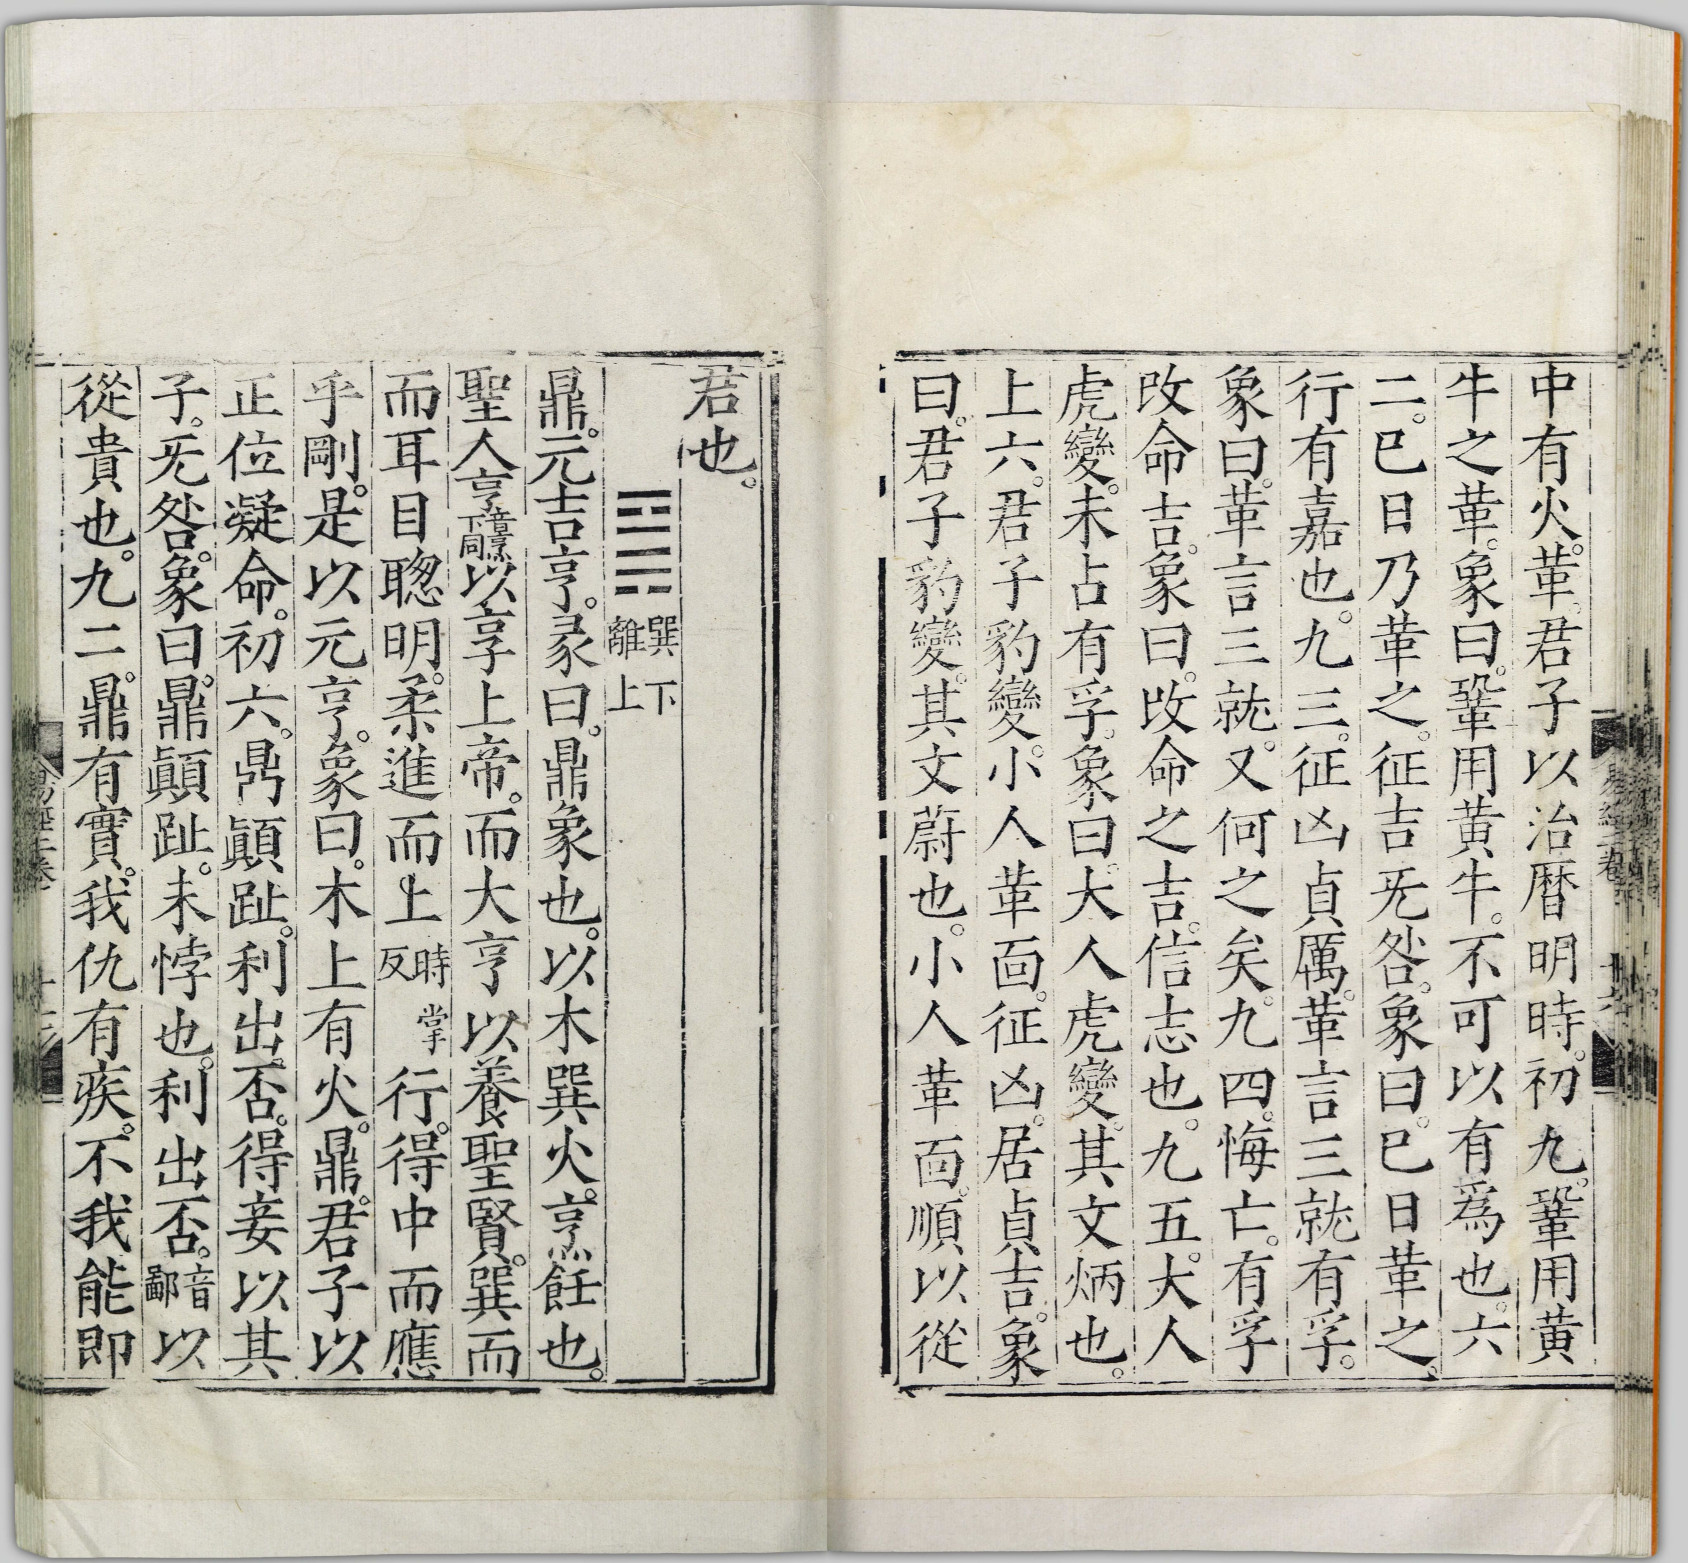 中有火。革。君子以治曆明時。初九。鞏用黄
牛之革。象曰。鞏用黄牛。不可以有爲也。六
二。巳日乃革之。征吉。旡咎。象曰。巳日革之。
行有嘉也。九三。征凶貞厲。革言三就有孚。
象曰。革言三就。又何之矣。九四。悔亡。有孚
改命吉。象曰。改命之吉。信志也。九五。大人
虎變。未占有孚。象曰。大人虎變。其文炳也。
上六。君子豹變。小人革面。征凶。居貞吉。象
曰。君子豹變。其文蔚也。小人革面。順以從
君也。
巽下
離上
鼎。元吉亨。彖曰。鼎象也。以木巽火。亨飪也。
聖人亨音烹下同以享上帝。而大亨以養聖賢。巽而
而耳目聰明。柔進而上時掌反行。得中而應
乎剛。是以元亨。象曰。木上有火。鼎。君子以
正位凝命。初六。鼎顚趾。利出否。得妾以其
子。旡咎。象曰。鼎顚趾。未悖也。利出否。音鄙以
從貴也。九二。鼎有實。我仇有疾。不我能即